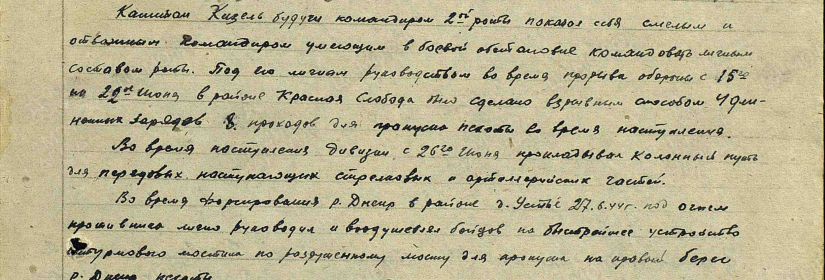 Капитан Кизель будучи командиром 2ой роты показал себя смелым и
отважным командиром умеющим в боевой обстановке командовать личным
составом роты. Под его личным руководством во время прорыва обороны с 15го
на 22ое Июня в районе Красная Слобода было сделано взрывным способом
зарядов 8 проходов для пропуска пехоты во время наступления.
Во время наступления дивизии с 26го Июня прокладывал колонный путь
для передовых наступающих стрелковых и артиллерийских частей.
Во время форсирования р. Днепр в районе д. Устье 27.6.44г. под огнем
противника лично руководил и воодушевлял бойцов на быстрейшее устройство
штурмового мостика по разрушенному мосту для пропуска на правый берег
р. Днепр пехоты